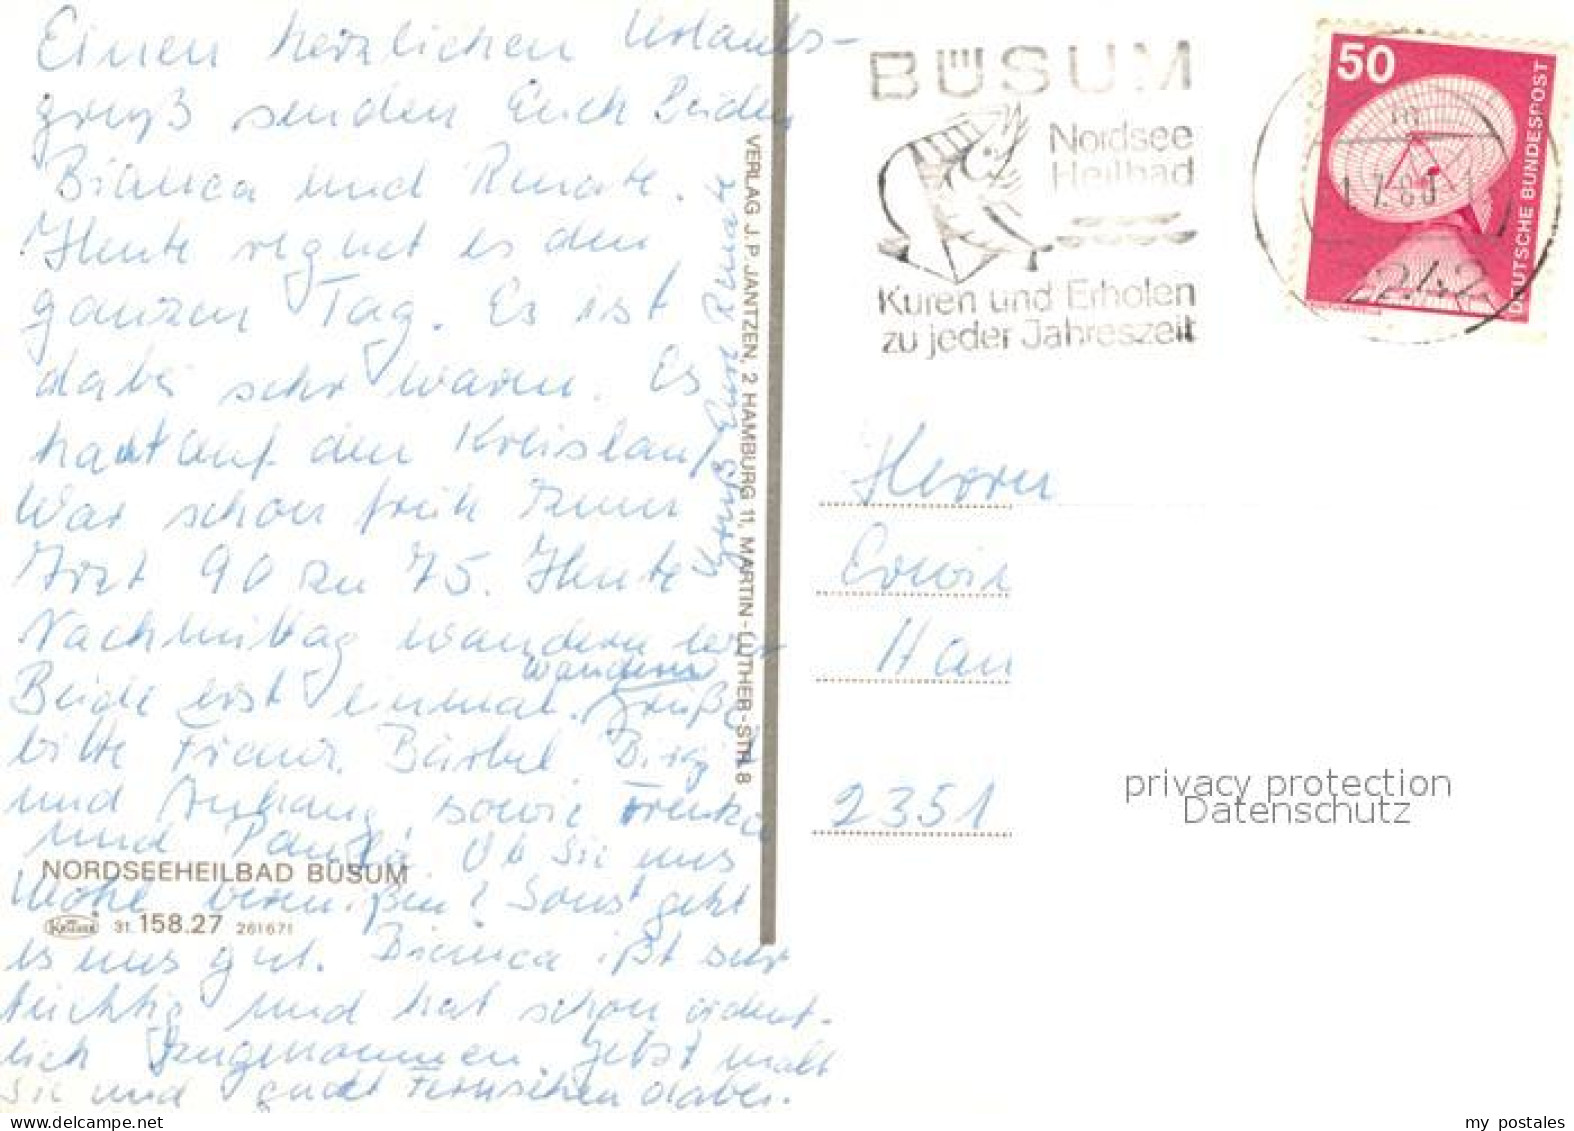 Einen herzlichen Urlaubs-
gruß senden Euch Beiden
Bianca und Renate.
Heute regnet es den
ganzen Tag. Es ist
dabei sehr warm. Es
haut auf den Kreislauf
War schon früh zum
Arzt 90 zu 75. Heute
Nachmittag wandern wir
wandern
Beide erst einmal. Grüße
bitte Franz, Bärbel, Birgit
und Anhang, sowie
und Ob Sie uns
wohl vermißen? Sonst geht
es uns gut. Bianca ißt sehr
tüchtig und hat schon ordent-
lich zugenommen. Jetzt malt
Sie und guckt Fernsehen dabei.
Gruß Eure Renate
NORDSEEHEILBAD BÜSUM
KRÜGER 31.158.27 261671
VERLAG J. P. JANTZEN, 2 HAMBURG 11, MARTIN-LUTHER-STR. 8
BÜSUM
Nordsee
Heilbad
Kuren und Erholen
zu jeder Jahreszeit
50
DEUTSCHE BUNDESPOST
2242
Herrn
Erwin
Han
2351
privacy protection
Datenschutz
my postales